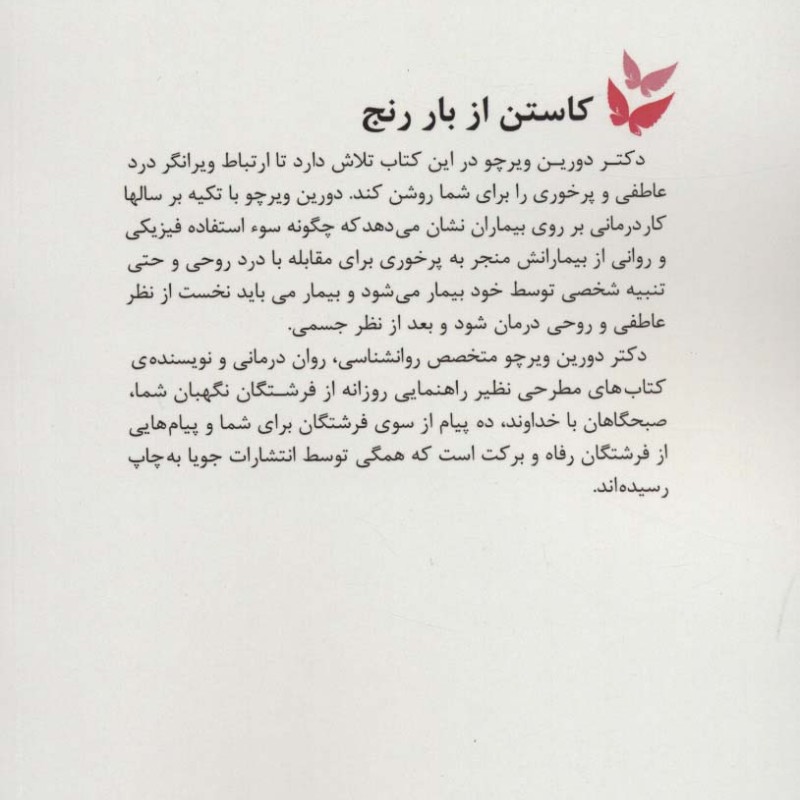 کاستن از بار رنج
دکتر دورین ویرچو در این کتاب تلاش دارد تا ارتباط ویرانگر درد
عاطفی و پرخوری را برای شما روشن کند. دورین ویرچو با تکیه بر سالها
کار درمانی بر روی بیماران نشان می‌دهد که چگونه سوء استفاده فیزیکی
و روانی از بیمارانش منجر به پرخوری برای مقابله با درد روحی و حتی
تنبیه شخصی توسط خود بیمار می‌شود و بیمار می باید نخست از نظر
عاطفی و روحی درمان شود و بعد از نظر جسمی.
دکتر دورین ویرچو متخصص روانشناسی، روان درمانی و نویسنده‌ی
کتاب‌های مطرحی نظیر راهنمایی روزانه از فرشتگان نگهبان شما،
صبحگاهان با خداوند، ده پیام از سوی فرشتگان برای شما و پیام‌هایی
از فرشتگان رفاه و برکت است که همگی توسط انتشارات جویا به چاپ
رسیده‌اند.